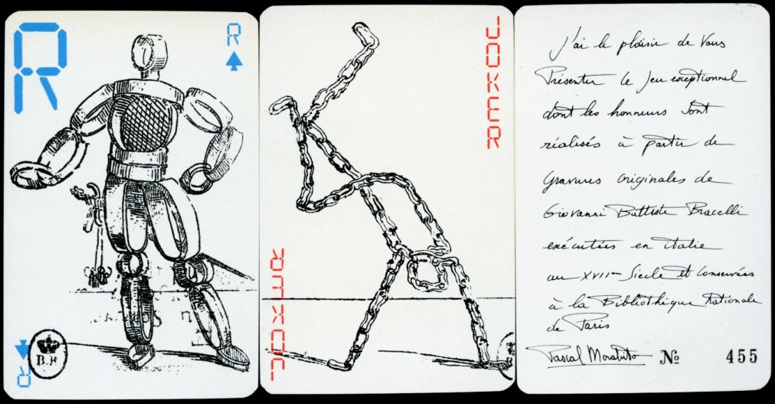 R
R
B.R
R
JOKER
JOKER
J'ai le plaisir de Vous
Présenter le Jeu exceptionnel
dont les honneurs sont
réalisés à partir de
gravures originales de
Giovanni Battista Bracelli
exécutées en italie
au XVIIème Siècle et Conservées
à la Bibliothèque Nationale
de Paris
Pascal № 455